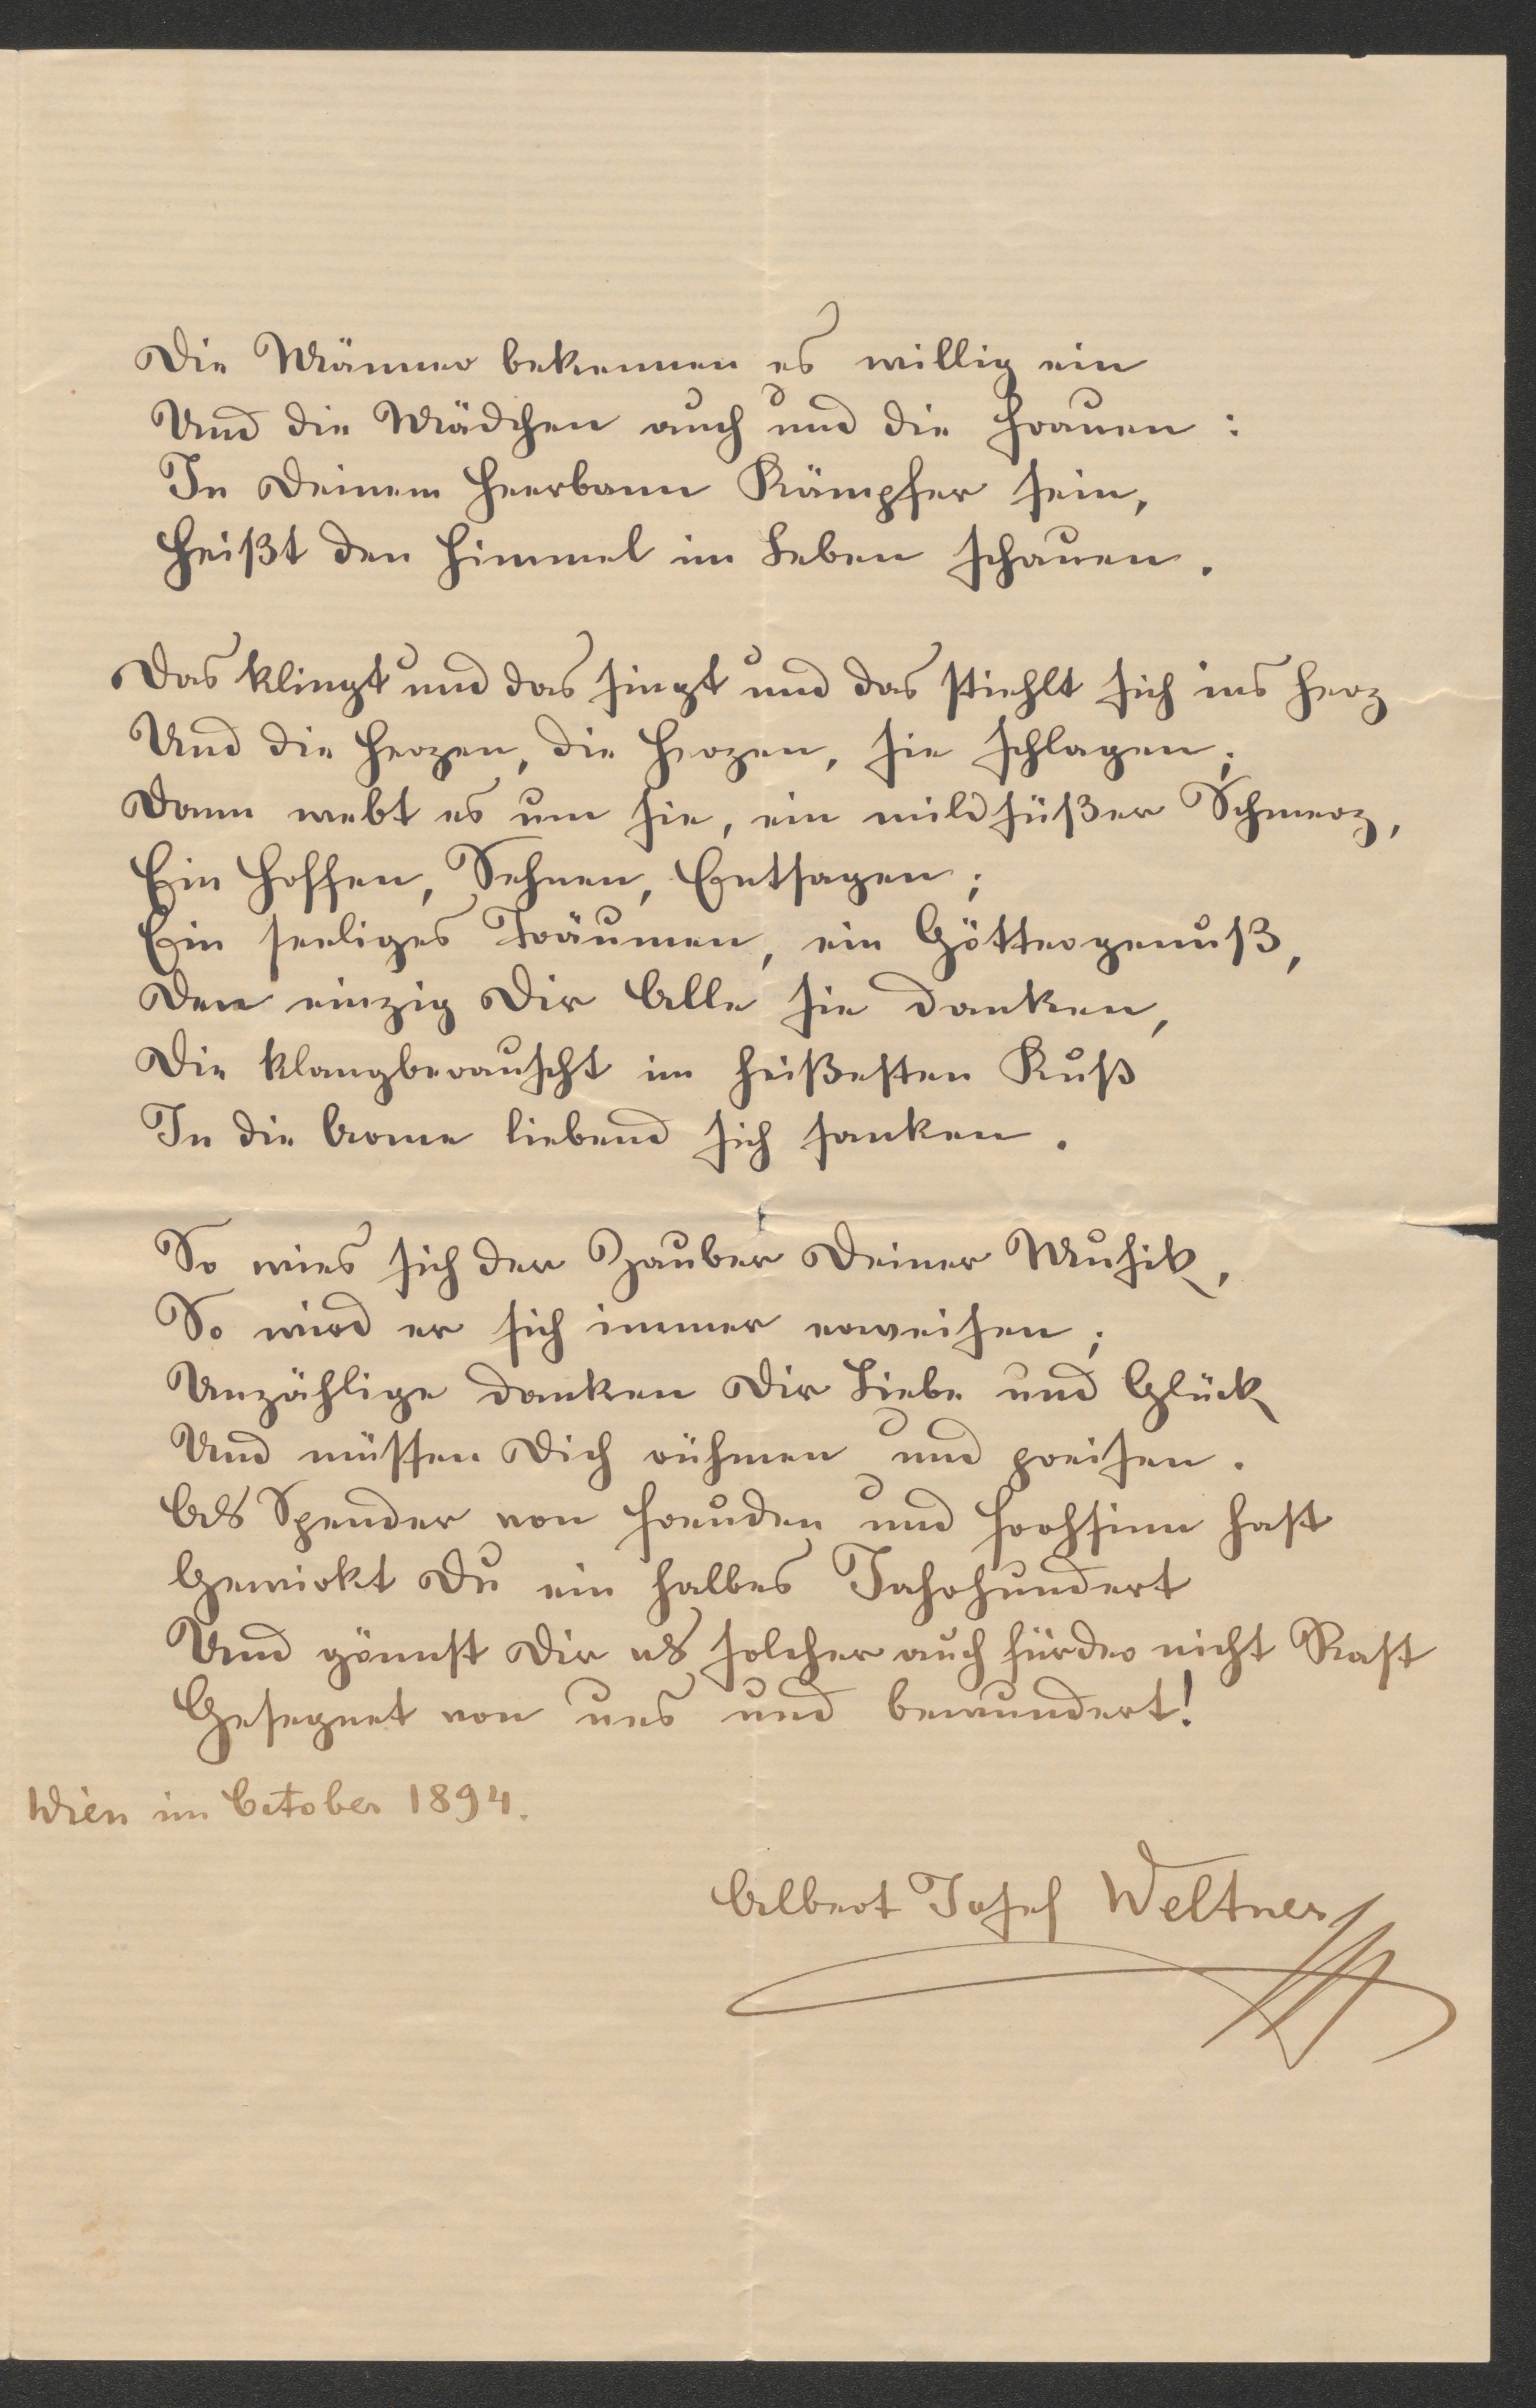 Die Männer bekennen es willig ein
Und die Mädchen auch und die Frauen:
In Deinem Heerbann Kämpfer sein,
Heißt den Himmel im Leben schauen.
Das klingt und das singt und das stiehlt sich ins Herz
Und die Herzen, die Herzen, sie schlagen;
Dann webt es um sie, ein mildsüßer Schmerz,
Ein Hoffen, Sehnen, Entsagen;
Ein seeliges Träumen, ein Göttergenuß,
Den einzig Dir Alle sie danken,
Die klangberauscht im heißesten Kuß
In die Arme liebend sich sanken.
So wies sich der Zauber Deiner Musik,
So wird er sich immer erweisen;
Unzählige danken Dir Liebe und Glück
Und müssen Dich rühmen und preisen.
Als Spender von Freuden und Frohsinn hast
Gewirkt Du ein halbes Jahrhundert
Und gönnst Dir als solcher auch fürder nicht Rast
Gesegnet von uns und bewundert!
Wien im October 1894.
Albert Josef Weltner